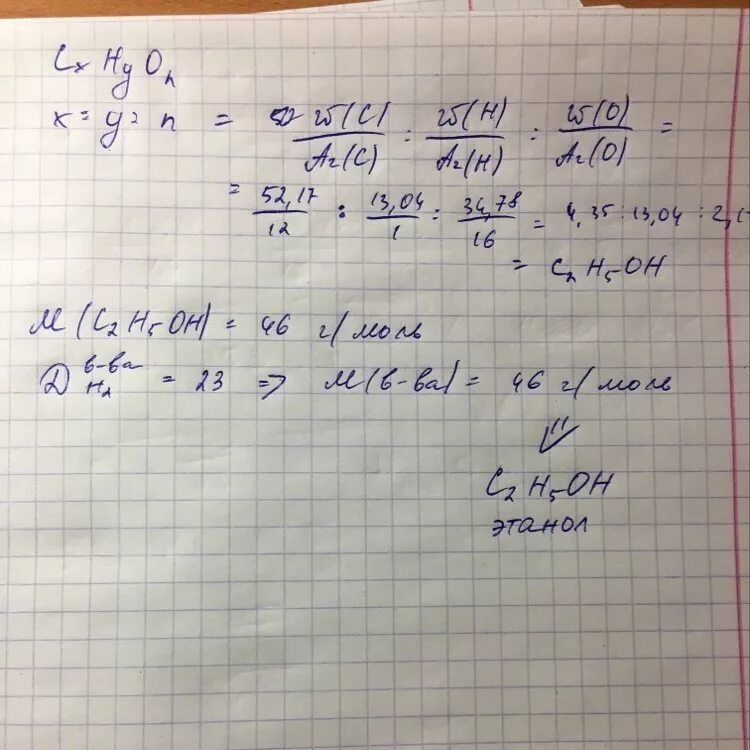 CxHyOn
x = y = n = w(C)/Ar(C) : w(H)/Ar(H) : w(O)/Ar(O) =
= 52,17/12 : 13,04/1 : 34,78/16 = 4,35 : 13,04 : 2,1
= C2H5OH
M(C2H5OH) = 46 г/моль
D в-ва H2 = 23 => M(в-ва) = 46 г/моль
⇓
C2H5OH
этанол